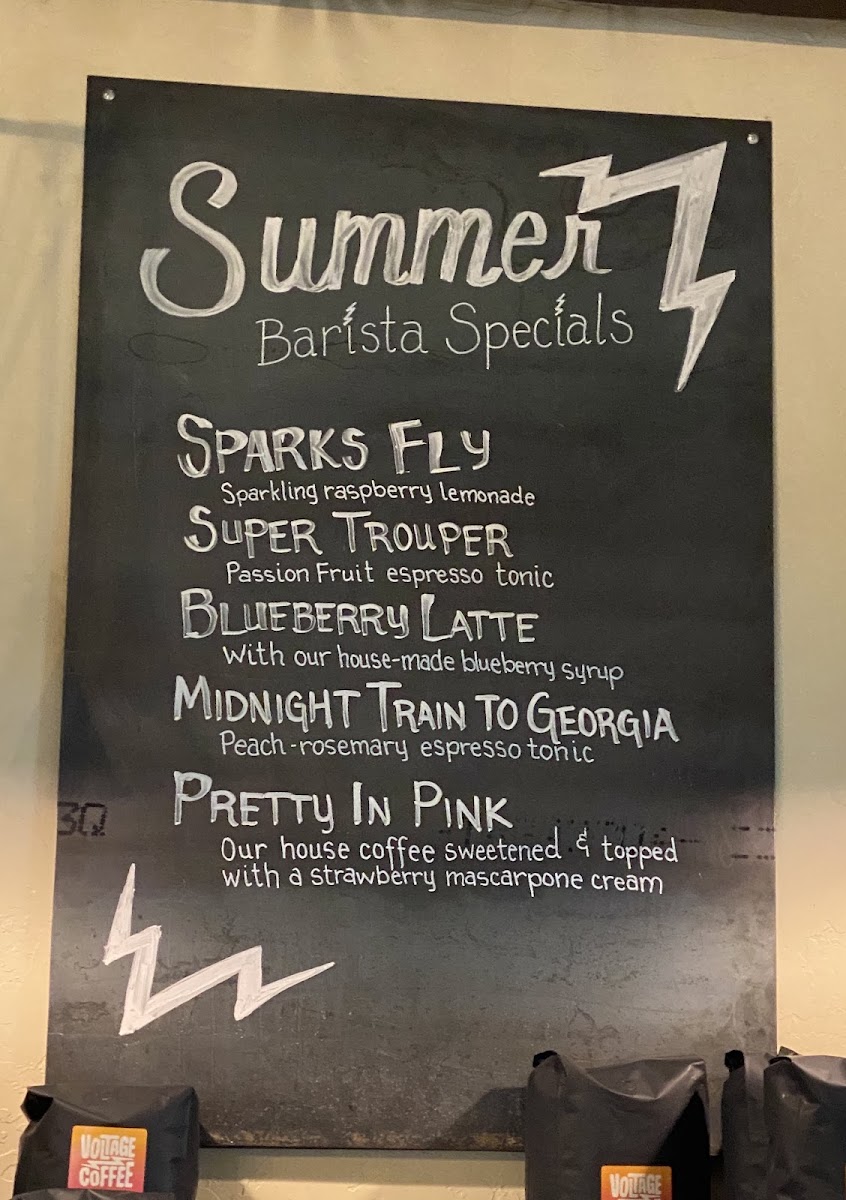 Summer
Barista Specials
SPARKS FLY
Sparkling raspberry lemonade
SUPER TROUPER
Passion Fruit espresso tonic
BLUEBERRY LATTE
With our house-made blueberry syrup
MIDNIGHT TRAIN TO GEORGIA
Peach-rosemary espresso tonic
PRETTY IN PINK
Our house coffee sweetened & topped
with a strawberry mascarpone cream
3Q
VOLTAGE
COFFEE
VOLTAGE